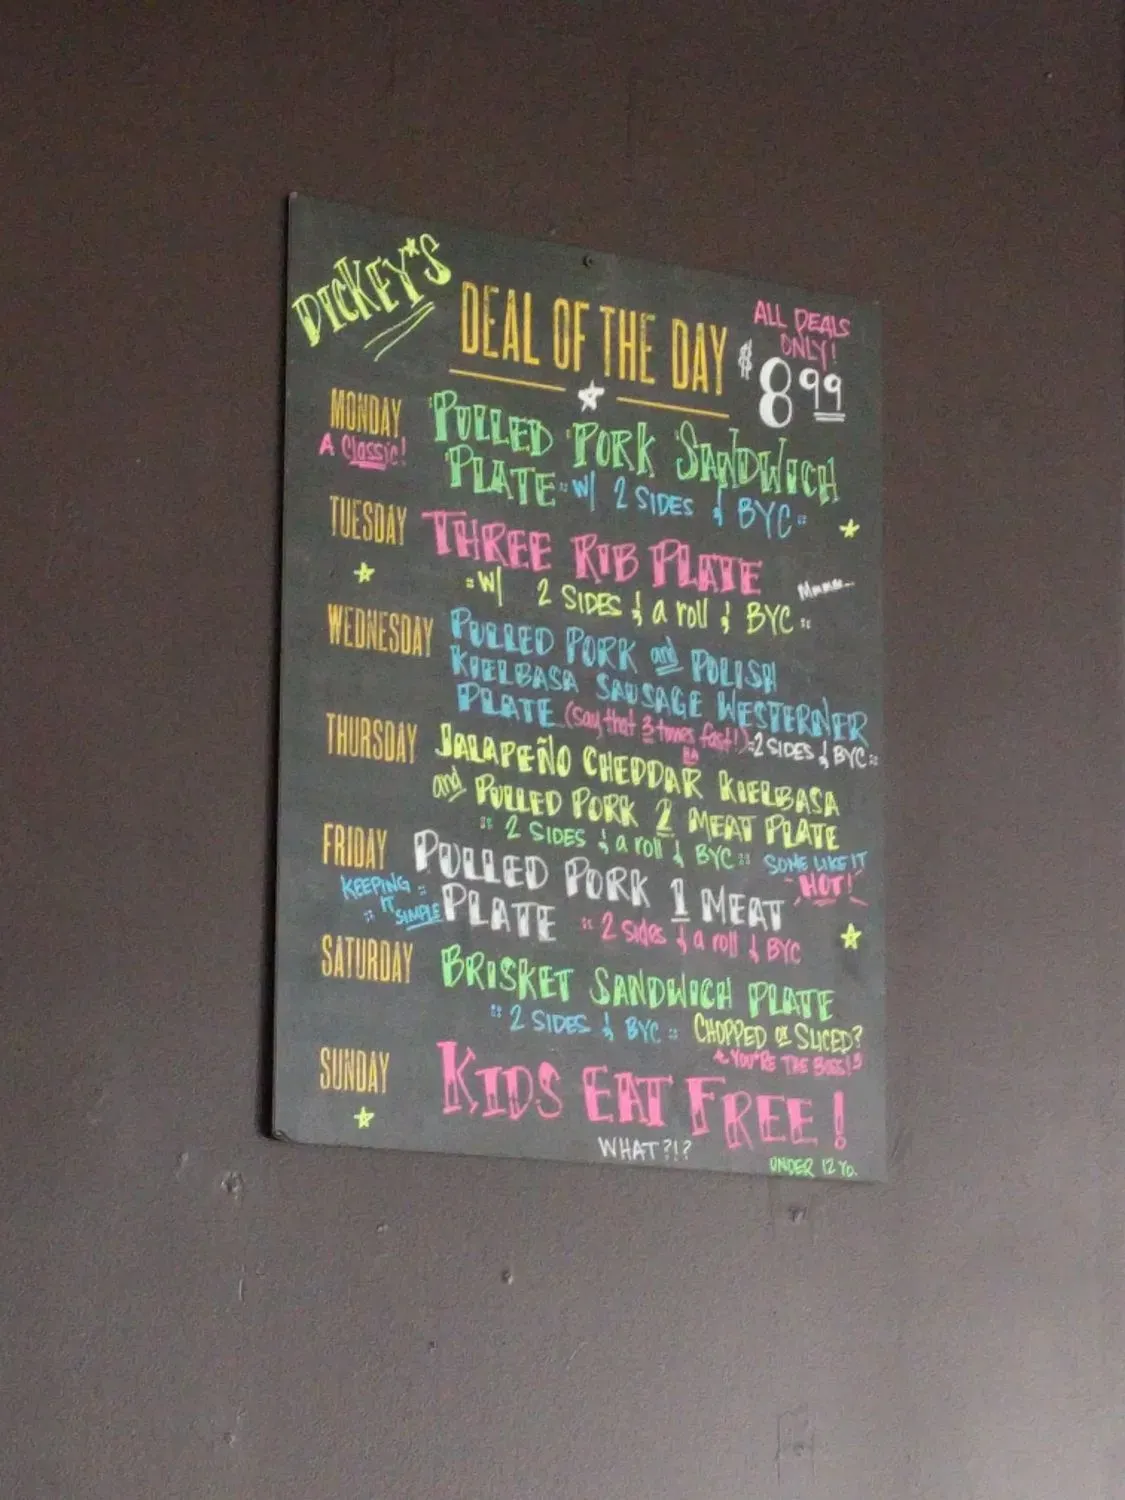 DICKEY'S
DEAL OF THE DAY
ALL DEALS
ONLY!
$8.99
MONDAY
A Classic!
PULLED PORK SANDWICH
PLATE :: W/ 2 SIDES & BYC ::
TUESDAY
THREE RIB PLATE
Mmmm...
:: W/ 2 SIDES & a roll & BYC ::
WEDNESDAY
PULLED PORK and POLISH
KIELBASA SAUSAGE WESTERNER
PLATE (say that 3 times fast!) :: 2 SIDES & BYC ::
HA
THURSDAY
JALAPEÑO CHEDDAR KIELBASA
and PULLED PORK 2 MEAT PLATE
:: 2 SIDES & a roll & BYC ::
SOME LIKE IT
HOT!
FRIDAY
KEEPING ::
:: IT
SIMPLE
PULLED PORK 1 MEAT
PLATE :: 2 sides & a roll & BYC
SATURDAY
BRISKET SANDWICH PLATE
:: 2 SIDES & BYC :: CHOPPED or SLICED?
YOU'RE THE BOSS!
SUNDAY
KIDS EAT FREE!
WHAT?!?
UNDER 12 YO.